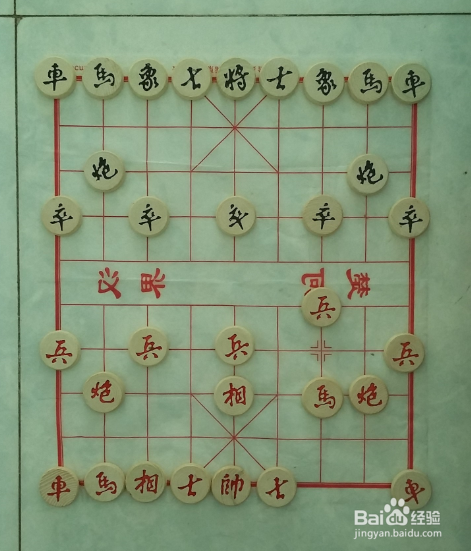 車馬象士將士象馬車
炮炮
卒卒卒卒卒
汉沮 河楚
兵
兵兵兵兵
炮相馬炮
車馬相士帥士車
Baidu经验
jingyan.baidu.com